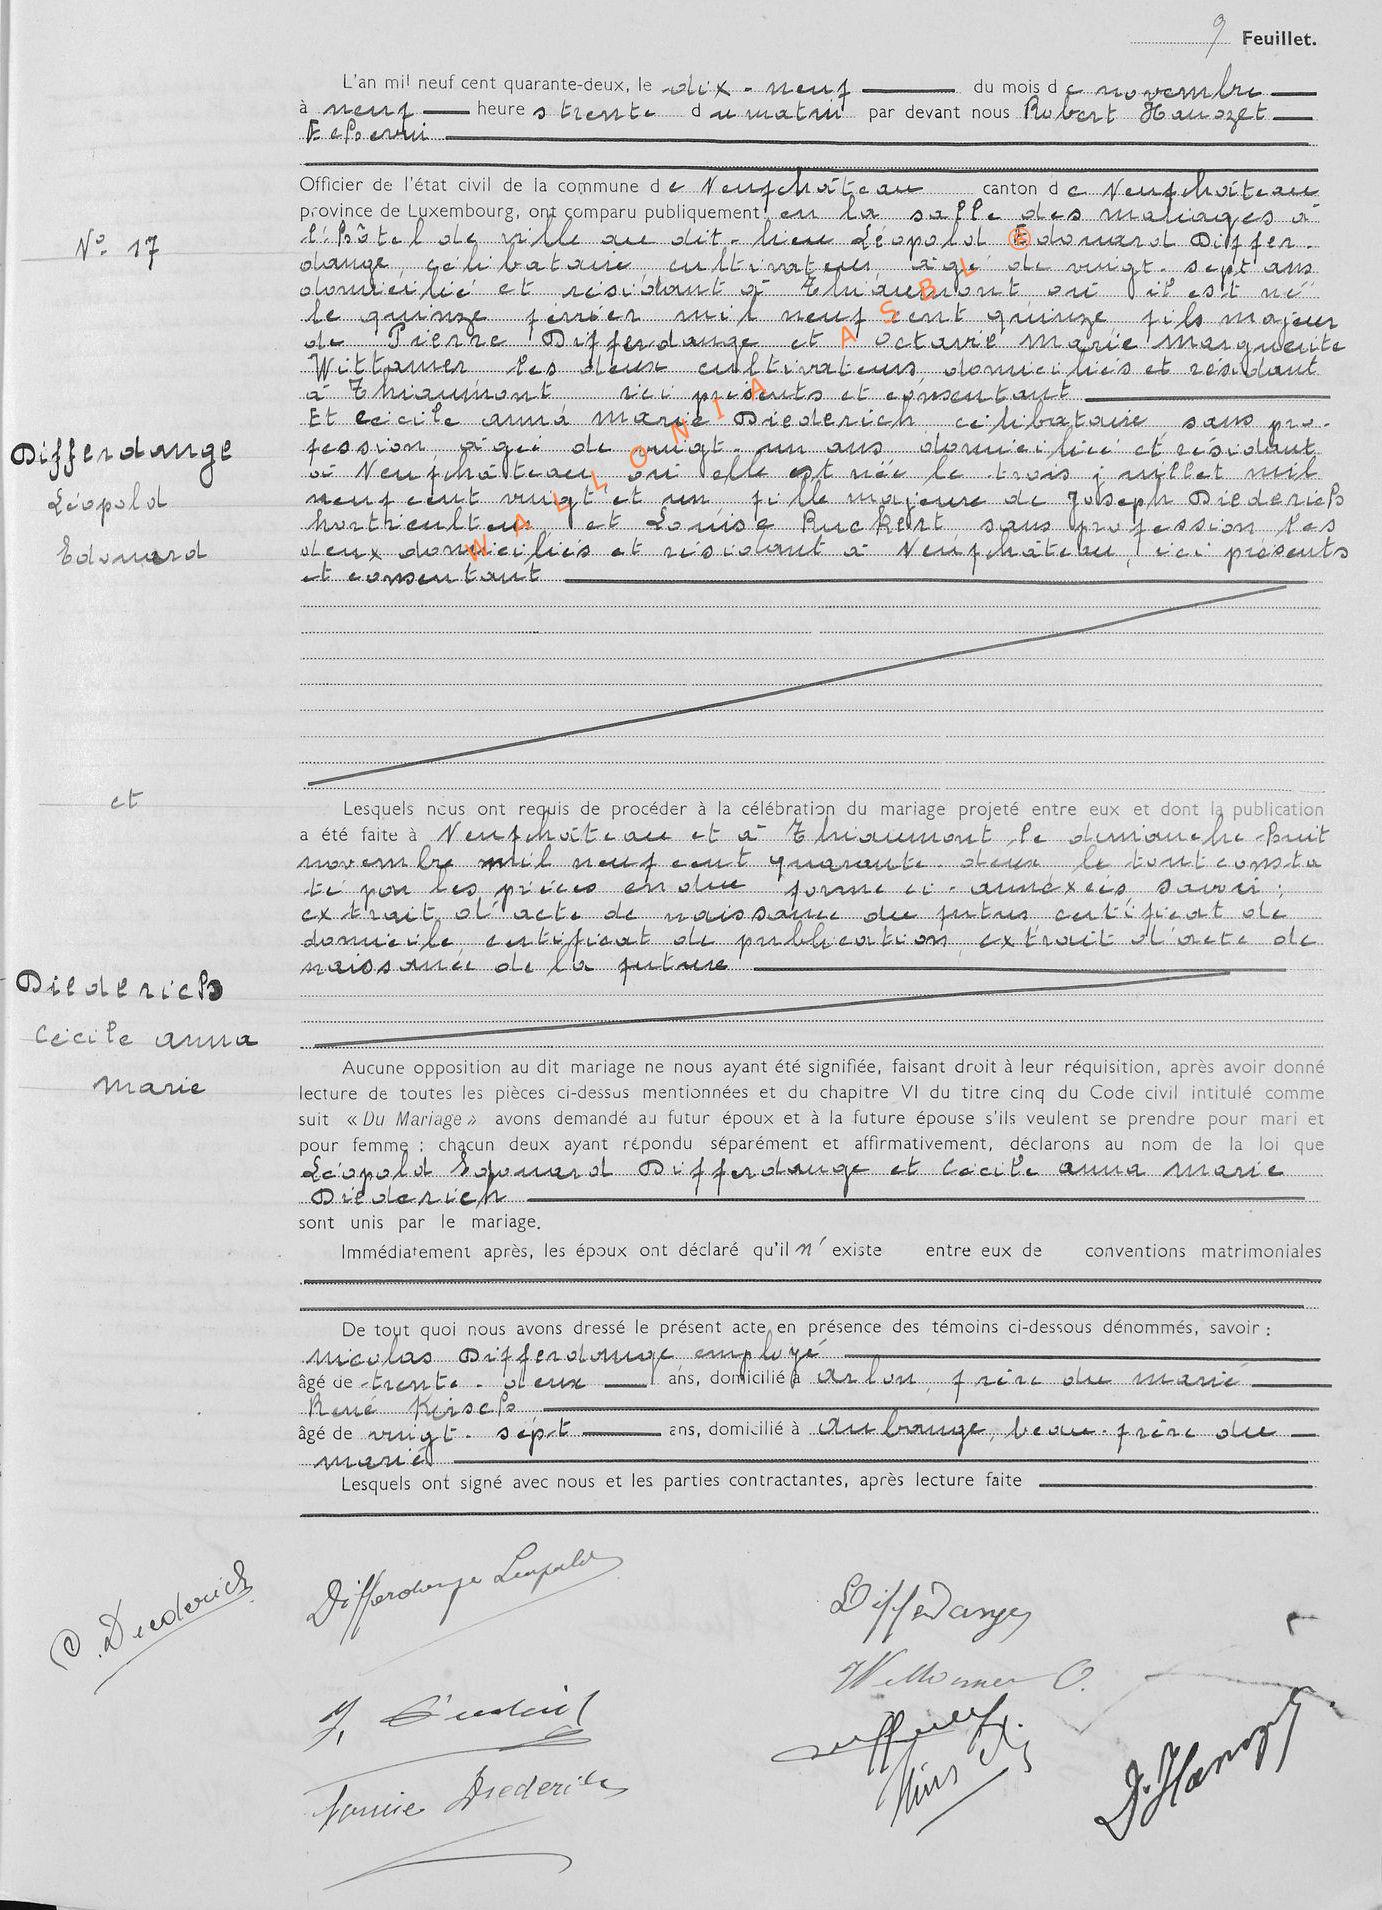 9 Feuillet.
L'an mil neuf cent quarante-deux, le dix-neuf du mois de novembre
à neuf heures trente du matin par devant nous Robert Hanozet
Echevin
Officier de l'état civil de la commune de Neufchâteau canton de Neufchâteau
province de Luxembourg, ont comparu publiquement en la salle des mariages à
l'hôtel de ville au dit-lieu Léopold Edouard Differ-
dange, célibataire, cultivateur, âgé de vingt-sept ans
domicilié et résidant à Thiaumont où il est né
le quinze février mil neuf cent quinze, fils majeur
de Pierre Differdange et Octavie Marie Marguerite
Wittamer les deux cultivateurs, domiciliés et résidant
à Thiaumont ici présents et consentant
Et Cécile Anna Marie Diederich, célibataire, sans pro-
fession, âgée de vingt-un ans, domiciliée et résidant
à Neufchâteau où elle est née le trois juillet mil
neuf cent vingt et un, fille majeure de Joseph Diederich
horticulteur et Louise Ruckert sans profession les
deux domiciliés et résidant à Neufchâteau, ici présents
et consentant
N° 17
Differdange
Léopold
Edouard
et
Diederich
Cécile Anna
Marie
WALLONIA ASBL ©
Lesquels nous ont requis de procéder à la célébration du mariage projeté entre eux et dont la publication
a été faite à Neufchâteau et à Thiaumont le dimanche huit
novembre mil neuf cent quarante-deux le tout consta
té par les pièces en due forme ci-annexées, savoir:
extrait d'acte de naissance du futur certificat de
domicile certificat de publication, extrait d'acte de
naissance de la future
Aucune opposition au dit mariage ne nous ayant été signifiée, faisant droit à leur réquisition, après avoir donné
lecture de toutes les pièces ci-dessus mentionnées et du chapitre VI du titre cinq du Code civil intitulé comme
suit « Du Mariage » avons demandé au futur époux et à la future épouse s'ils veulent se prendre pour mari et
pour femme : chacun deux ayant répondu séparément et affirmativement, déclarons au nom de la loi que
Léopold Edouard Differdange et Cécile Anna Marie
Diederich
sont unis par le mariage.
Immédiatement après, les époux ont déclaré qu'il n'existe entre eux de conventions matrimoniales
De tout quoi nous avons dressé le présent acte en présence des témoins ci-dessous dénommés, savoir :
Nicolas Differdange, employé
âgé de trente-deux ans, domicilié à Arlon, frère du marié
René Kersch
âgé de vingt-sept ans, domicilié à Aubange, beau-frère du
marié
Lesquels ont signé avec nous et les parties contractantes, après lecture faite
C. Diederich
Differdange Léopold
Differdange
Wittamer O.
Diederich
Dr Hanozet